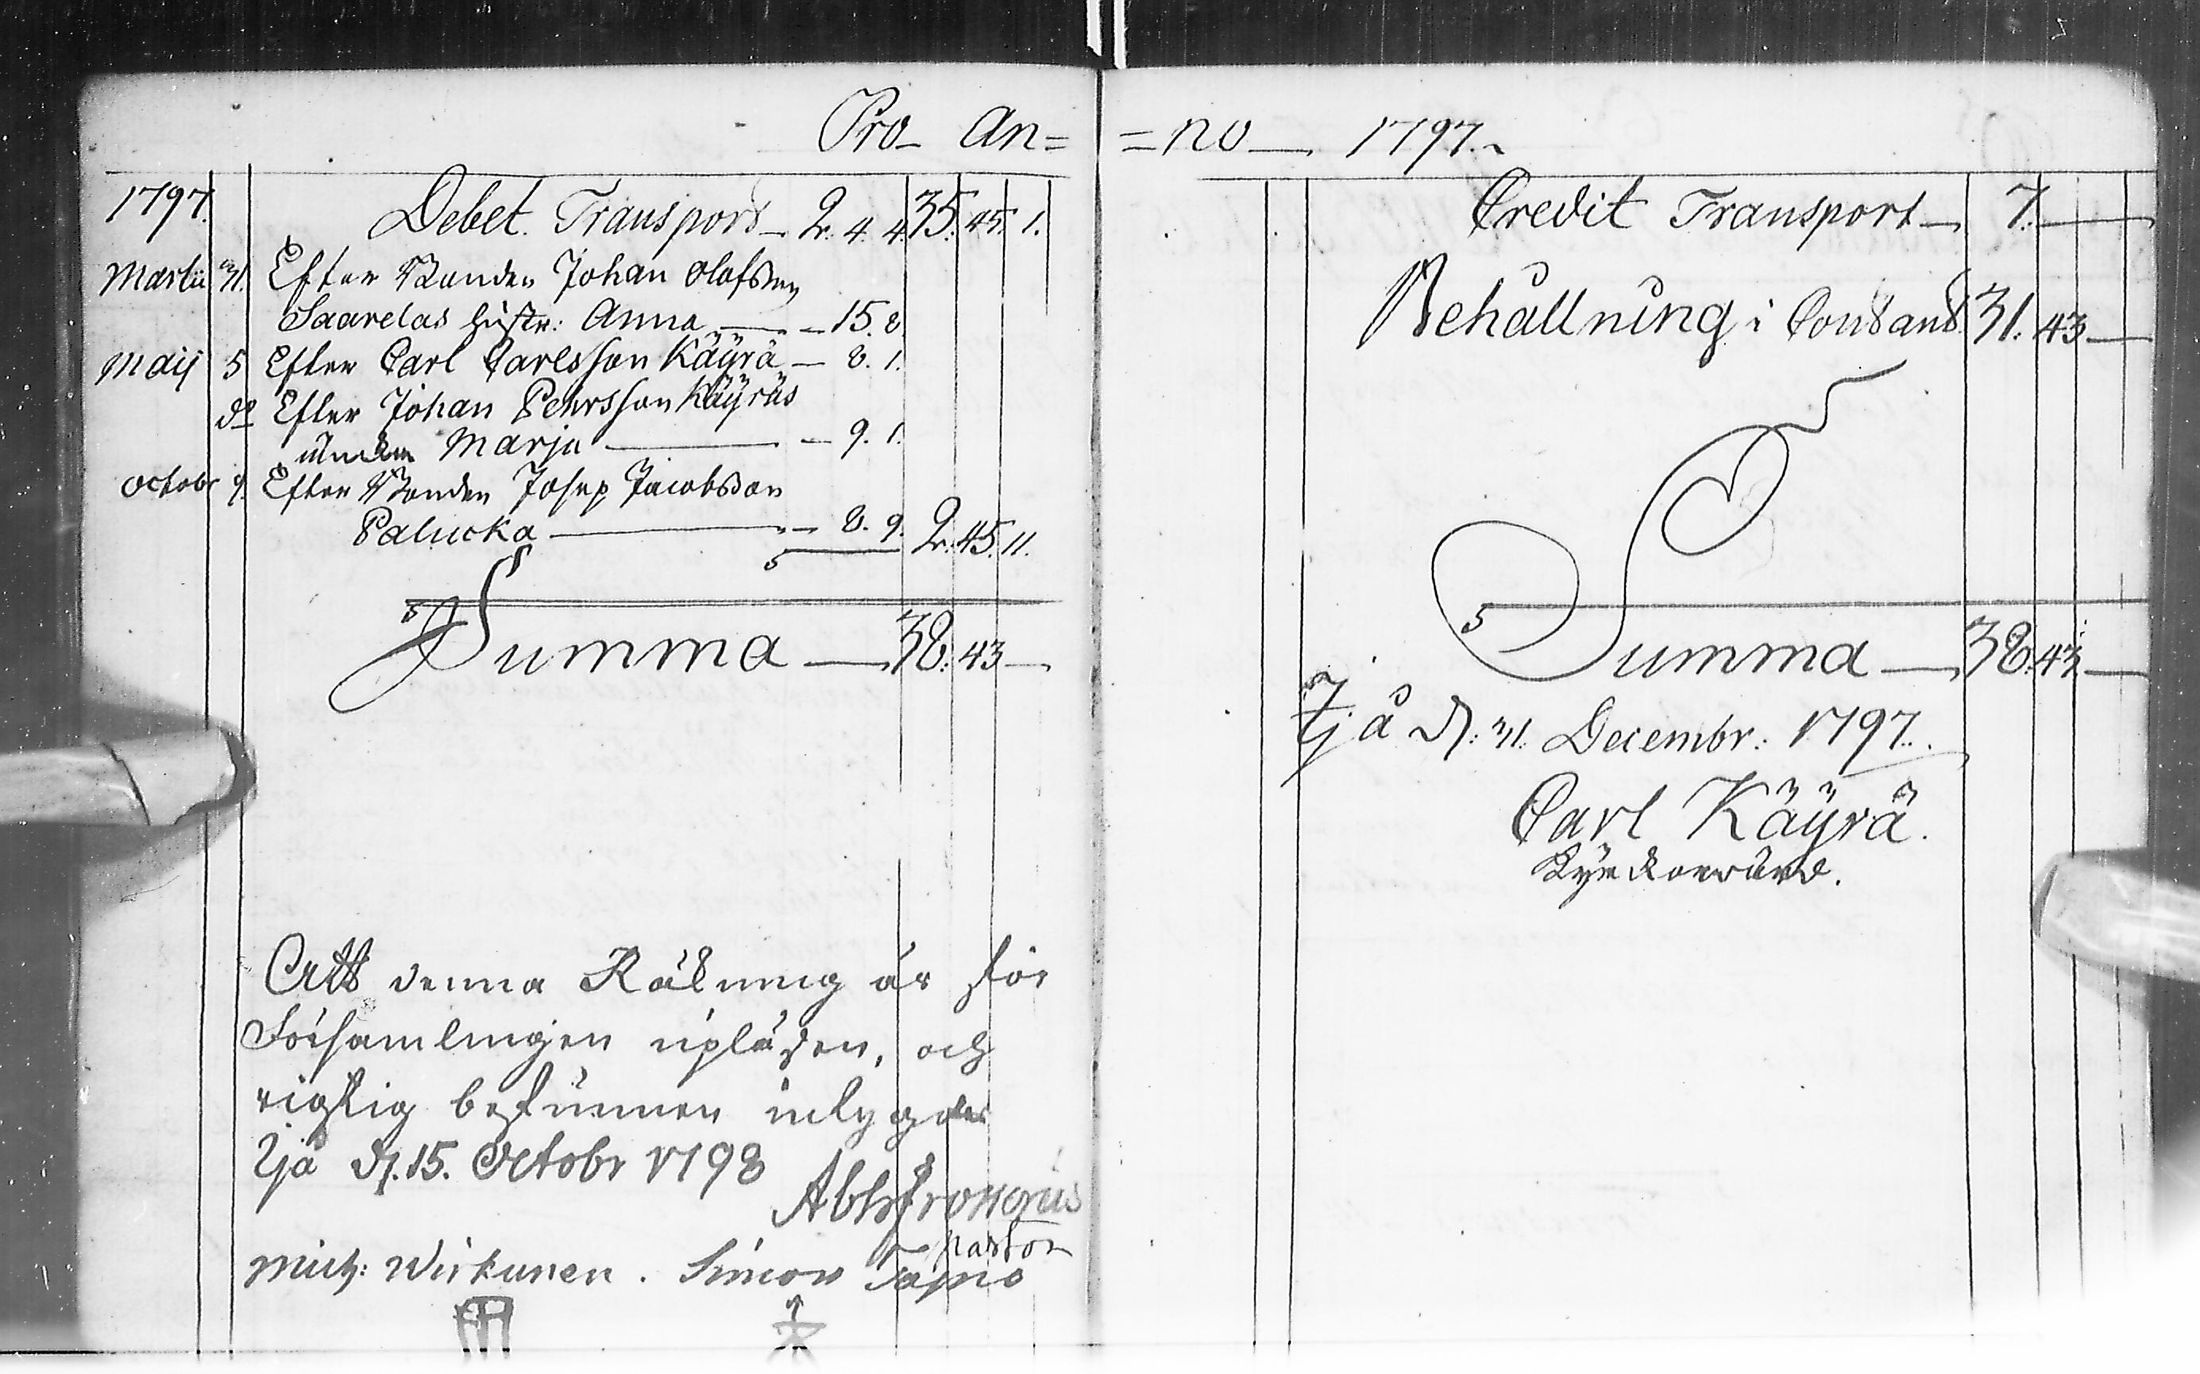 Pro An=
1797. Debet. Transport 2. 4. 4. 35. 45. 1.
Martii 31. Efter Bonden Johan Olofsson
Saarelas hustr: Anna — 15. 8
Maij 5 Efter Carl Carlsson Käÿrä — 8. 1.
do Efter Johan Pehrsson Käÿräs
Marja — 9. 1.
Octobr 9. Efter Bonden Josep Jacobsson
Palucka — 8. 9. 2. 45. 11.
Summa — 38. 43 —
Att denna Räkning är för
Församlingen upläsen, och
rigtig befunnen intygar
Ijå d. 15. Octobr 1798
Pastor
Mich: Wirkunen. Simon Tapio
=no — 1797.
Credit Transport — 7. —
Behållning i Contant 31. 43 —
Summa — 38. 43. —
Ijå d: 31. Decembr: 1797.
Carl Käÿrä.
Kyrckovärd.